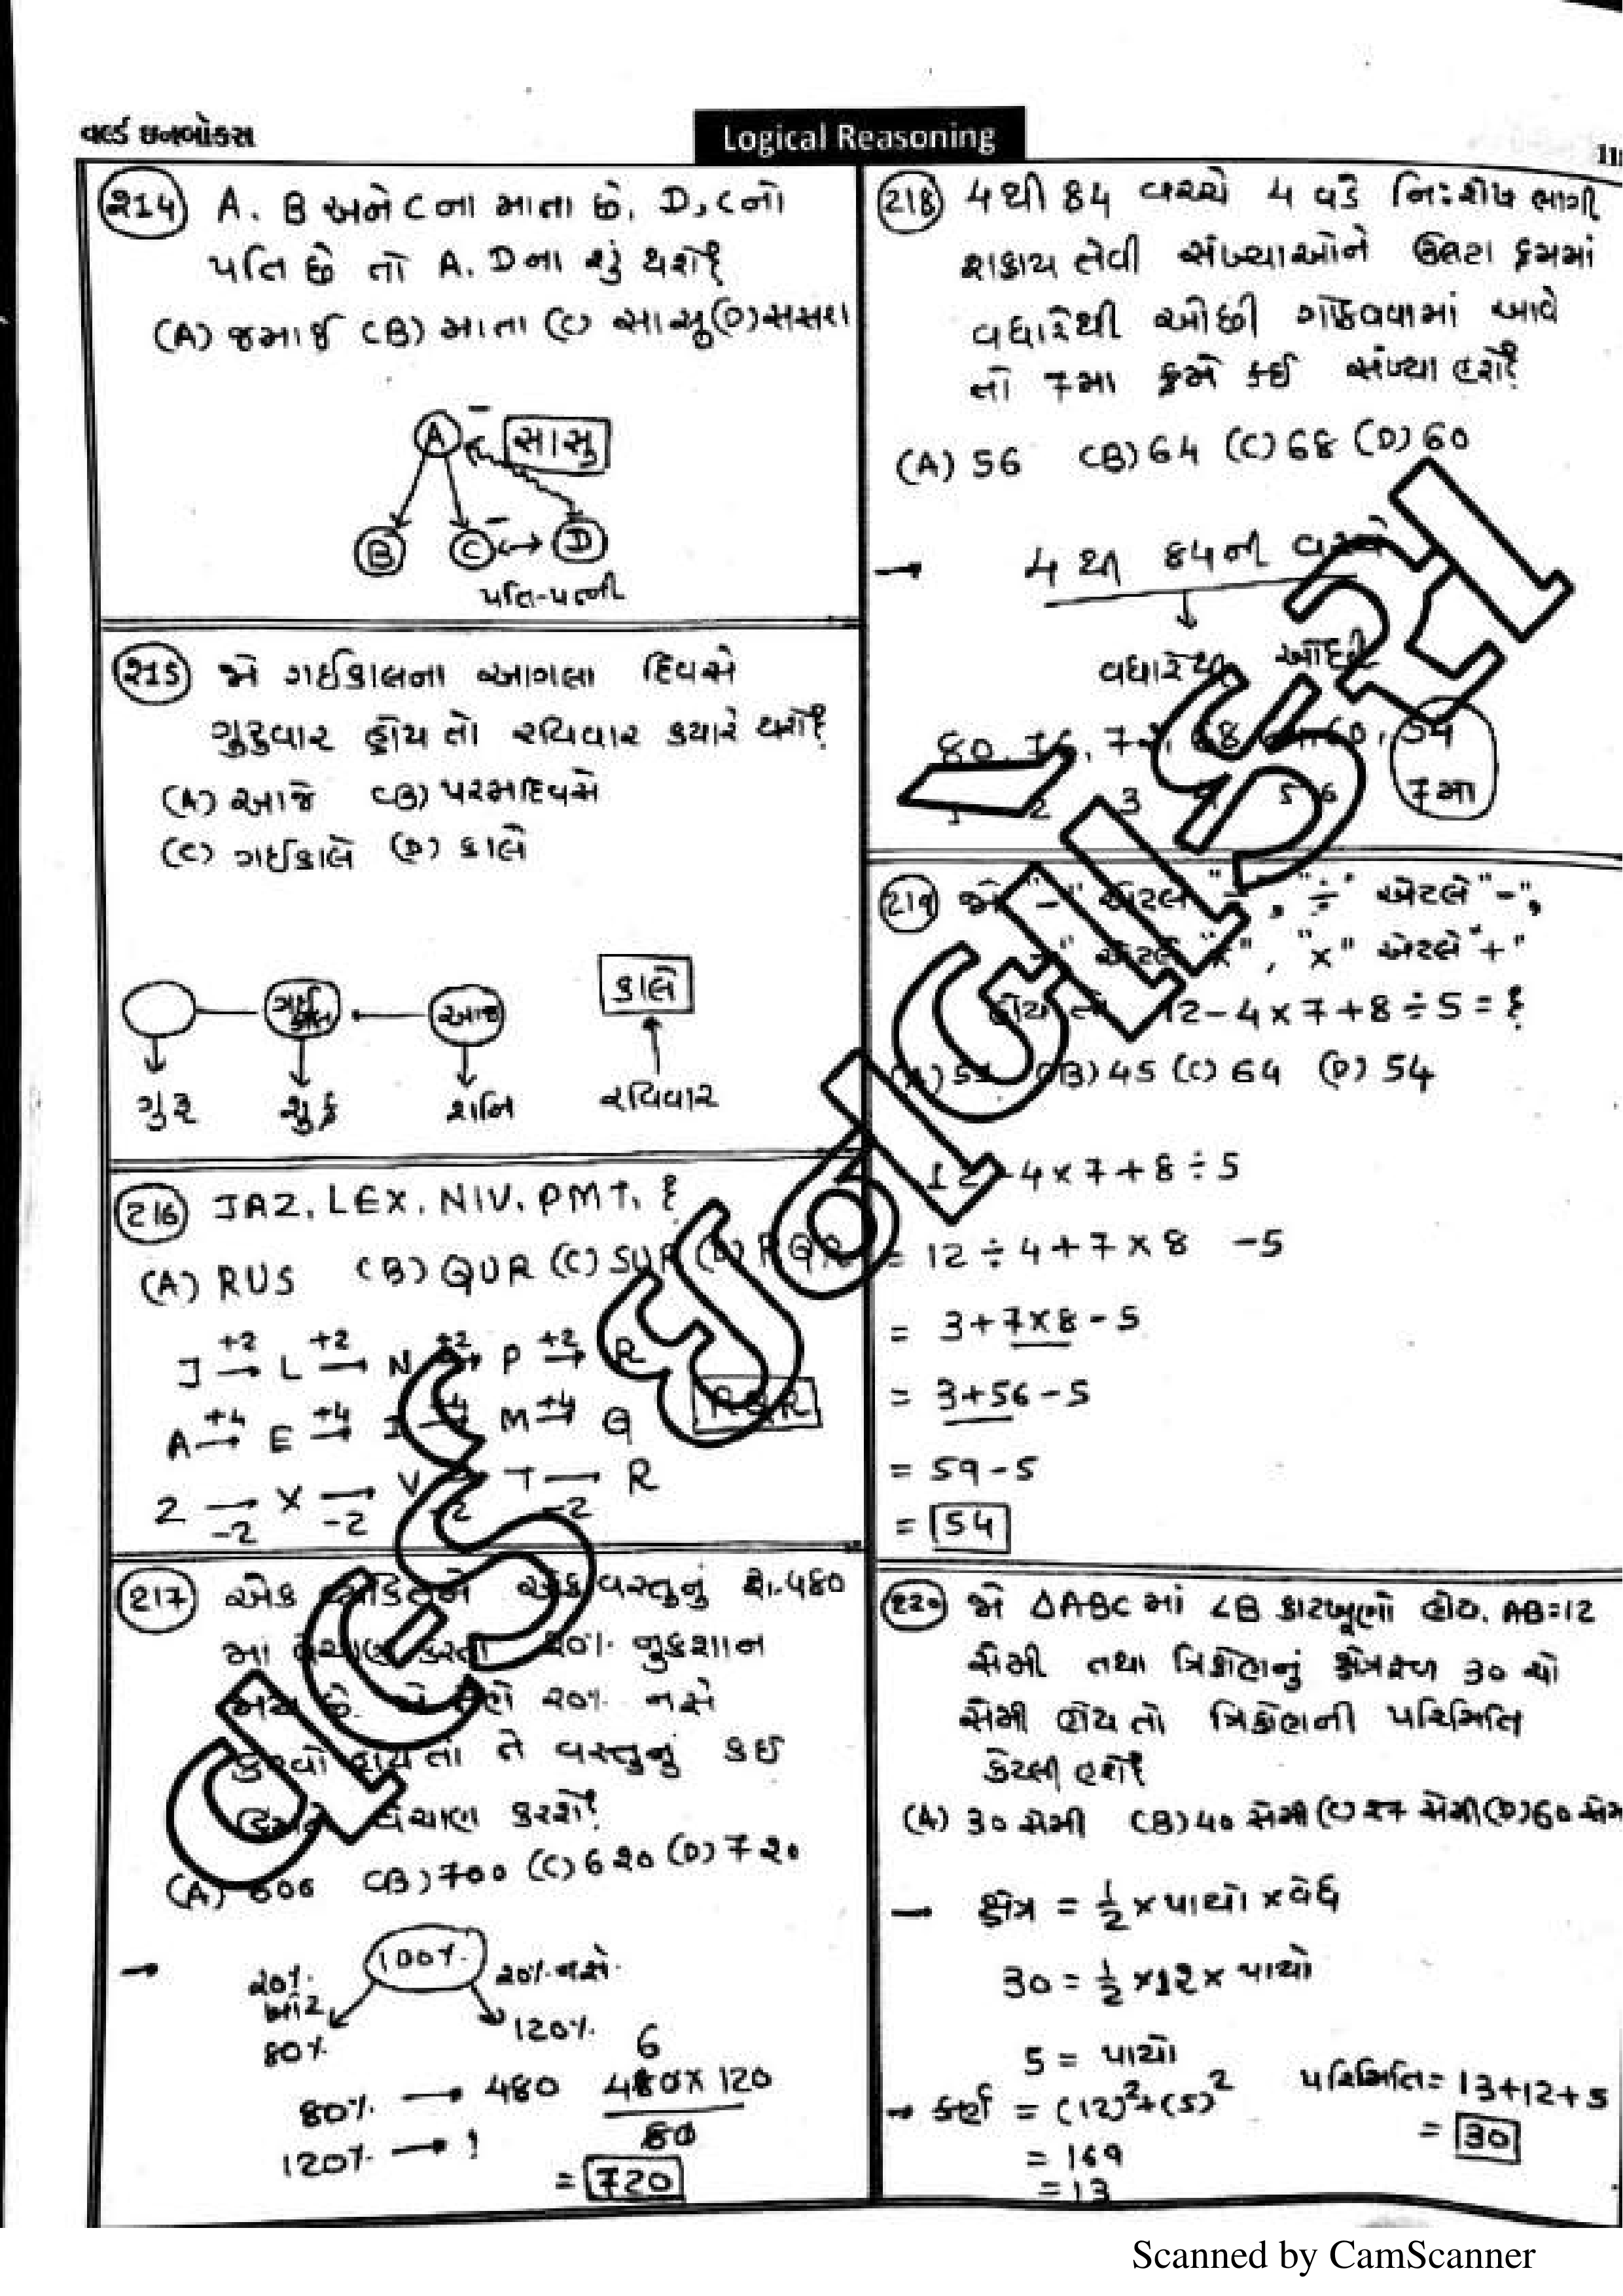 વર્લ્ડ ઇનબોક્સ
Logical Reasoning
11
214 A, B અને C ના માતા છે, D, C નો
પતિ છે તો A, D ના શું થશે?
(A) જમાઈ (B) માતા (C) સાસુ (D) સસરા
A સાસુ
B C D
પતિ-પત્ની
215 જો ગઈકાલના આગલા દિવસે
ગુરુવાર હોય તો રવિવાર ક્યારે થશે?
(A) આજે (B) પરમદિવસે
(C) ગઈકાલે (D) કાલે
ગઈકાલ આજ કાલે
ગુરૂ શુક્ર શનિ રવિવાર
216 JAZ, LEX, NIV, PMT, ?
(A) RUS (B) QUR (C) SUR (D) RQR
J +2→ L +2→ N +2→ P +2→ R
A +4→ E +4→ I +4→ M +4→ Q RQR
Z -2→ X -2→ V -2→ T -2→ R
217 એક વસ્તુનું રૂ.480
માં 20% નુકશાન
20% નફો
તે વસ્તુનું કઈ
વેચાણ કરશે?
(A) 606 (B) 700 (C) 620 (D) 720
→ 100%
20% ખોટ 20% નફો
80% 120%
80% → 480 480 × 120
120% → ? 80
6
= 720
218 4 થી 84 વચ્ચે 4 વડે નિ:શેષ ભાગી
શકાય તેવી સંખ્યાઓને ઉલટા ક્રમમાં
વધારેથી ઓછી ગોઠવવામાં આવે
તો 7મા ક્રમે કઈ સંખ્યા હશે?
(A) 56 (B) 64 (C) 68 (D) 60
→ 4 થી 84ની વચ્ચે
વધારેથી ઓછી
80, 76, 72, 68, 60, 54
1 2 3 4 5 6 7મા
219 જો "-" એટલે "÷", "÷" એટલે "-",
એટલે "x", "x" એટલે "+"
હોય તો 12-4×7+8÷5 = ?
(B) 45 (C) 64 (D) 54
12-4×7+8÷5
= 12÷4+7×8 -5
= 3+7×8-5
= 3+56-5
= 59-5
= 54
220 જો ΔABC માં ∠B કાટખૂણો હોય, AB=12
સેમી તથા ત્રિકોણનું ક્ષેત્રફળ 30 ચો
સેમી હોય તો ત્રિકોણની પરિમિતિ
કેટલી હશે?
(A) 30 સેમી (B) 40 સેમી (C) 27 સેમી (D) 60 સેમ
→ ક્ષેત્ર = 1/2 × પાયો × વેધ
30 = 1/2 × 12 × પાયો
5 = પાયો
→ કર્ણ = (12)²+(5)² પરિમિતિ = 13+12+5
= 169 = 30
= 13
Scanned by CamScanner